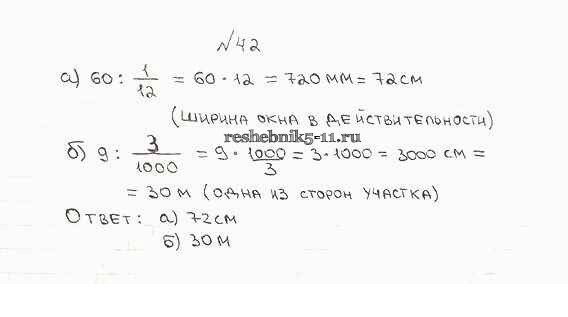 №42
а) 60 : 1/12 = 60 · 12 = 720 мм = 72 см
(ширина окна в действительности)
reshebnik5-11.ru
б) 9 : 3/1000 = 9 · 1000/3 = 3 · 1000 = 3000 см =
= 30 м (одна из сторон участка)
Ответ: а) 72 см
б) 30 м